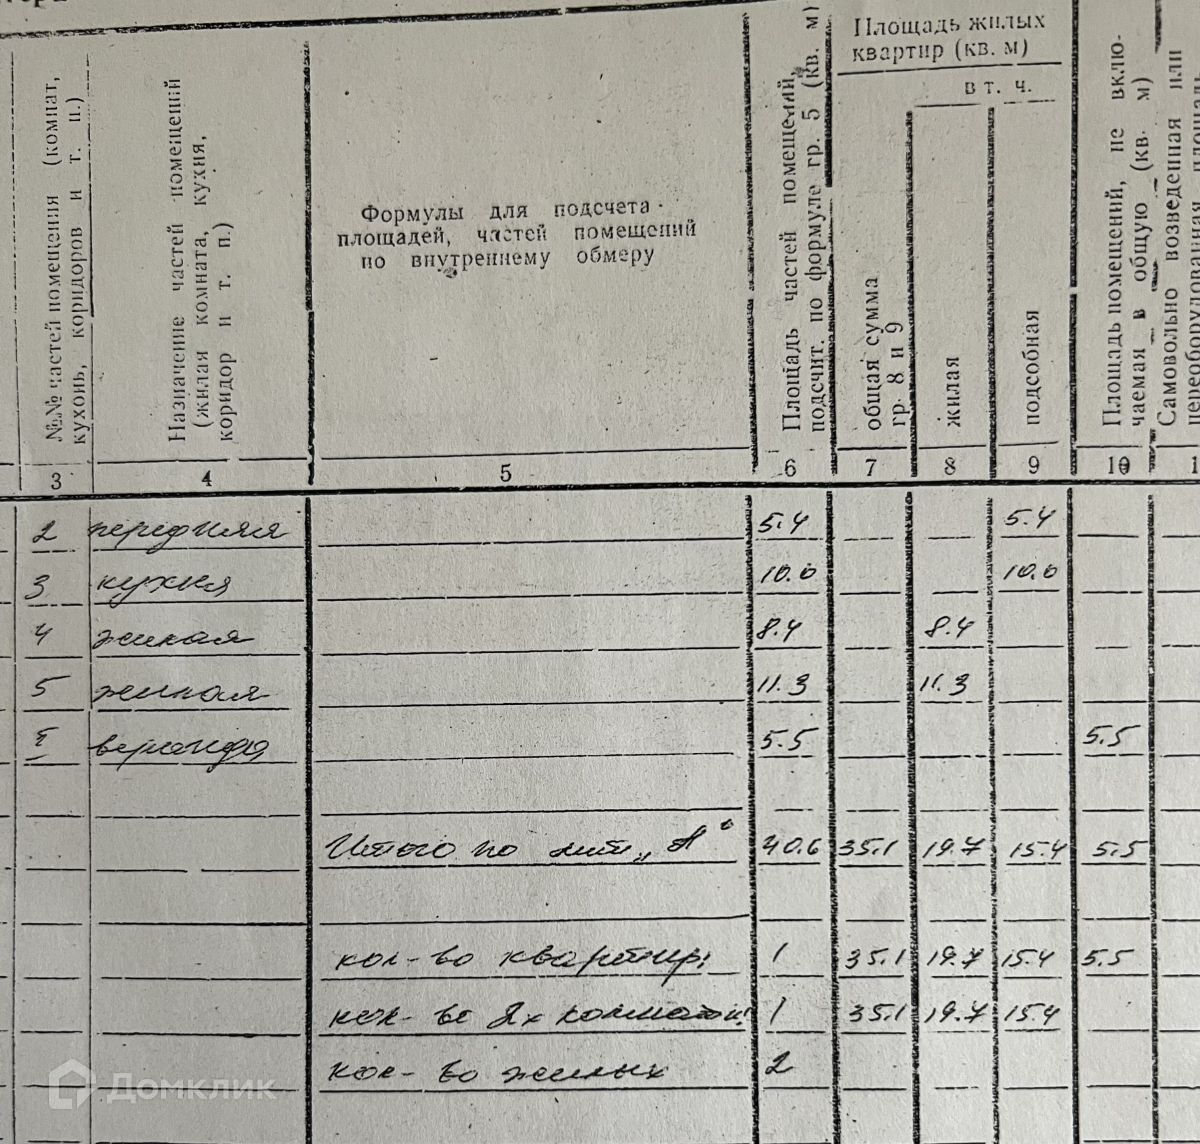 №№ частей помещения (комнат,
кухонь, коридоров и т. п.)
Назначение частей помещений
(жилая комната, кухня,
коридор и т. п.)
Формулы для подсчета
площадей, частей помещений
по внутреннему обмеру
Площадь частей помещений,
подсчит. по формуле гр. 5 (кв. м)
Площадь жилых
квартир (кв. м)
в т. ч.
общая сумма
гр. 8 и 9
жилая
подсобная
Площадь помещений, не вклю-
чаемая в общую (кв. м)
Самовольно возведенная или
переоборудования площадь
3 4 5 6 7 8 9 10 1
2 передняя 5.4 5.4
3 кухня 10.0 10.0
4 жилая 8.4 8.4
5 жилая 11.3 11.3
I веранда 5.5 5.5
Итого по лит „А" 40.6 35.1 19.7 15.4 5.5
кол-во квартир: 1 35.1 19.7 15.4 5.5
кол-во 2х комнатн: 1 35.1 19.7 15.4
кол-во жилых 2
Домклик